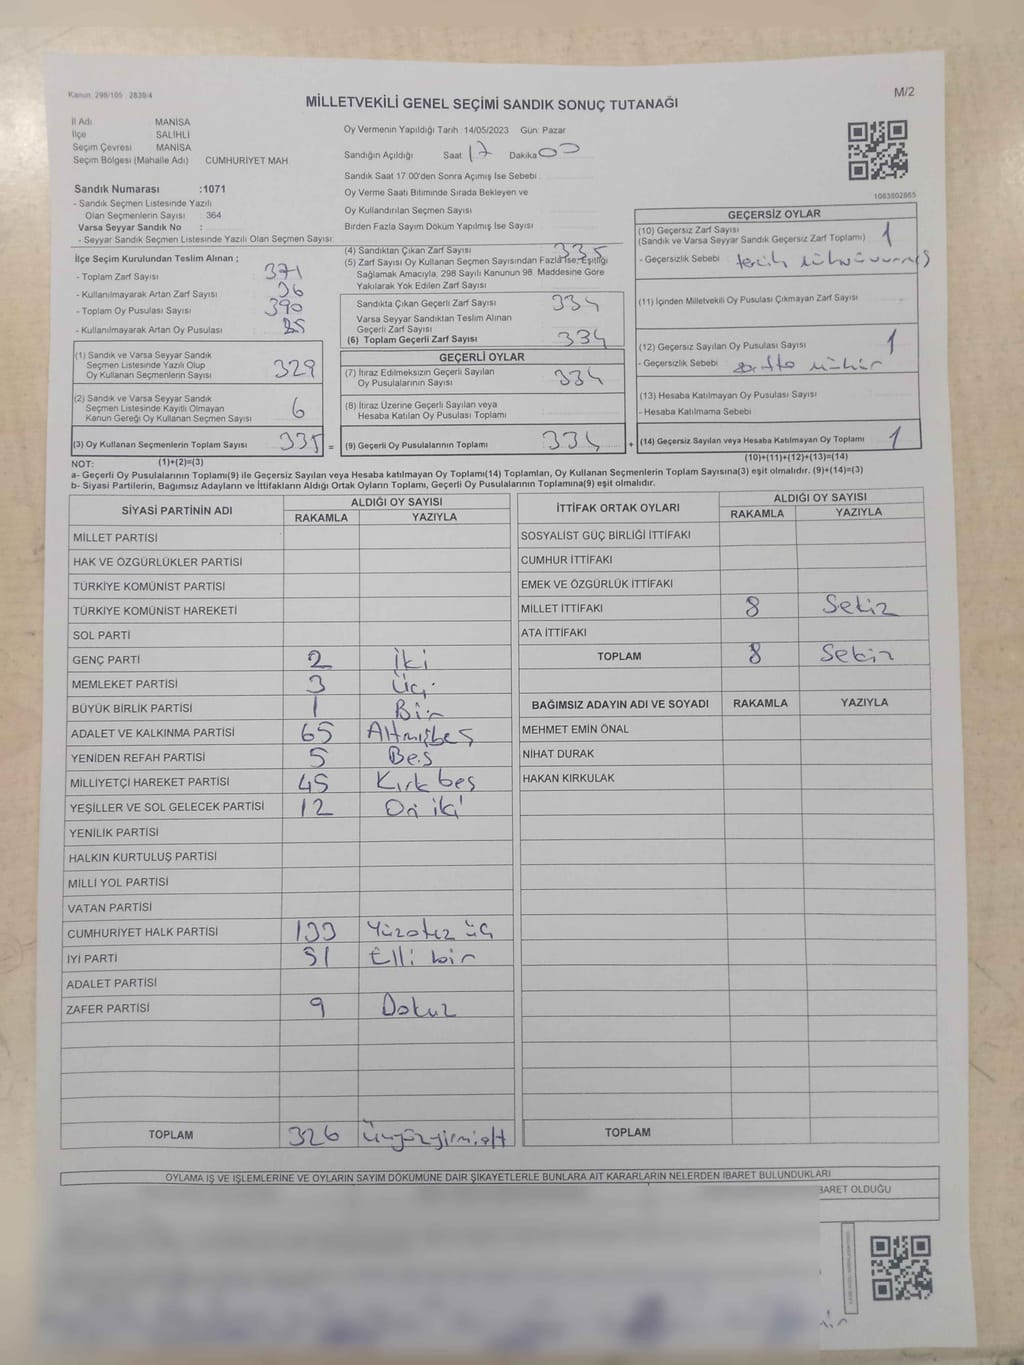 Kanun: 298/105 2839/4
M/2
MİLLETVEKİLİ GENEL SEÇİMİ SANDIK SONUÇ TUTANAĞI
İl Adı MANİSA
İlçe SALİHLİ
Seçim Çevresi MANİSA
Seçim Bölgesi (Mahalle Adı) CUMHURİYET MAH
Sandık Numarası :1071
- Sandık Seçmen Listesinde Yazılı
Olan Seçmenlerin Sayısı : 364
Varsa Seyyar Sandık No :
- Seyyar Sandık Seçmen Listesinde Yazılı Olan Seçmen Sayısı:
Oy Vermenin Yapıldığı Tarih :14/05/2023 Gün: Pazar
Sandığın Açıldığı Saat 17 Dakika 00
Sandık Saat 17:00'den Sonra Açımış İse Sebebi :
Oy Verme Saati Bitiminde Sırada Bekleyen ve
Oy Kullandırılan Seçmen Sayısı
Birden Fazla Sayım Döküm Yapılmış İse Sayısı :
1083802865
İlçe Seçim Kurulundan Teslim Alınan ;
- Toplam Zarf Sayısı 371
- Kullanılmayarak Artan Zarf Sayısı 36
- Toplam Oy Pusulası Sayısı 390
- Kullanılmayarak Artan Oy Pusulası
(1) Sandık ve Varsa Seyyar Sandık
Seçmen Listesinde Yazılı Olup
Oy Kullanan Seçmenlerin Sayısı 329
(2) Sandık ve Varsa Seyyar Sandık
Seçmen Listesinde Kayıtlı Olmayan
Kanun Gereği Oy Kullanan Seçmen Sayısı 6
(3) Oy Kullanan Seçmenlerin Toplam Sayısı 335 =
(4) Sandıktan Çıkan Zarf Sayısı 335
(5) Zarf Sayısı Oy Kullanan Seçmen Sayısından Fazla İse, Eşitliği
Sağlamak Amacıyla, 298 Sayılı Kanunun 98. Maddesine Göre
Yakılarak Yok Edilen Zarf Sayısı
Sandıkta Çıkan Geçerli Zarf Sayısı 334
Varsa Seyyar Sandıktan Teslim Alınan
Geçerli Zarf Sayısı
(6) Toplam Geçerli Zarf Sayısı 334
GEÇERLİ OYLAR
(7) İtiraz Edilmeksizin Geçerli Sayılan
Oy Pusulalarının Sayısı 334
(8) İtiraz Üzerine Geçerli Sayılan veya
Hesaba Katılan Oy Pusulası Toplamı
(9) Geçerli Oy Pusulalarının Toplamı 334 +
GEÇERSİZ OYLAR
(10) Geçersiz Zarf Sayısı 1
(Sandık ve Varsa Seyyar Sandık Geçersiz Zarf Toplamı)
- Geçersizlik Sebebi tercih
(11) İçinden Milletvekili Oy Pusulası Çıkmayan Zarf Sayısı
(12) Geçersiz Sayılan Oy Pusulası Sayısı 1
- Geçersizlik Sebebi mühür
(13) Hesaba Katılmayan Oy Pusulası Sayısı
- Hesaba Katılmama Sebebi
(14) Geçersiz Sayılan veya Hesaba Katılmayan Oy Toplamı 1
(10)+(11)+(12)+(13)=(14)
NOT: (1)+(2)=(3)
a- Geçerli Oy Pusulalarının Toplamı(9) ile Geçersiz Sayılan veya Hesaba katılmayan Oy Toplamı(14) Toplamları, Oy Kullanan Seçmenlerin Toplam Sayısına(3) eşit olmalıdır. (9)+(14)=(3)
b- Siyasi Partilerin, Bağımsız Adayların ve İttifakların Aldığı Ortak Oyların Toplamı, Geçerli Oy Pusulalarının Toplamına(9) eşit olmalıdır.
SİYASİ PARTİNİN ADI ALDIĞI OY SAYISI
RAKAMLA YAZIYLA
MİLLET PARTİSİ
HAK VE ÖZGÜRLÜKLER PARTİSİ
TÜRKİYE KOMÜNİST PARTİSİ
TÜRKİYE KOMÜNİST HAREKETİ
SOL PARTİ
GENÇ PARTİ 2 İki
MEMLEKET PARTİSİ 3 Üç
BÜYÜK BİRLİK PARTİSİ 1 Bir
ADALET VE KALKINMA PARTİSİ 65 Altmışbeş
YENİDEN REFAH PARTİSİ 5 Beş
MİLLİYETÇİ HAREKET PARTİSİ 45 Kırk beş
YEŞİLLER VE SOL GELECEK PARTİSİ 12 On iki
YENİLİK PARTİSİ
HALKIN KURTULUŞ PARTİSİ
MİLLİ YOL PARTİSİ
VATAN PARTİSİ
CUMHURİYET HALK PARTİSİ 133 Yüzotuz üç
İYİ PARTİ 51 Elli bir
ADALET PARTİSİ
ZAFER PARTİSİ 9 Dokuz
TOPLAM 326 Üçyüzyirmialtı
İTTİFAK ORTAK OYLARI ALDIĞI OY SAYISI
RAKAMLA YAZIYLA
SOSYALİST GÜÇ BİRLİĞİ İTTİFAKI
CUMHUR İTTİFAKI
EMEK VE ÖZGÜRLÜK İTTİFAKI
MİLLET İTTİFAKI 8 Sekiz
ATA İTTİFAKI
TOPLAM 8 Sekiz
BAĞIMSIZ ADAYIN ADI VE SOYADI RAKAMLA YAZIYLA
MEHMET EMİN ÖNAL
NİHAT DURAK
HAKAN KIRKULAK
TOPLAM
OYLAMA İŞ VE İŞLEMLERİNE VE OYLARIN SAYIM DÖKÜMÜNE DAİR ŞİKAYETLERLE BUNLARA AİT KARARLARIN NELERDEN İBARET BULUNDUKLARI
BARET OLDUĞU